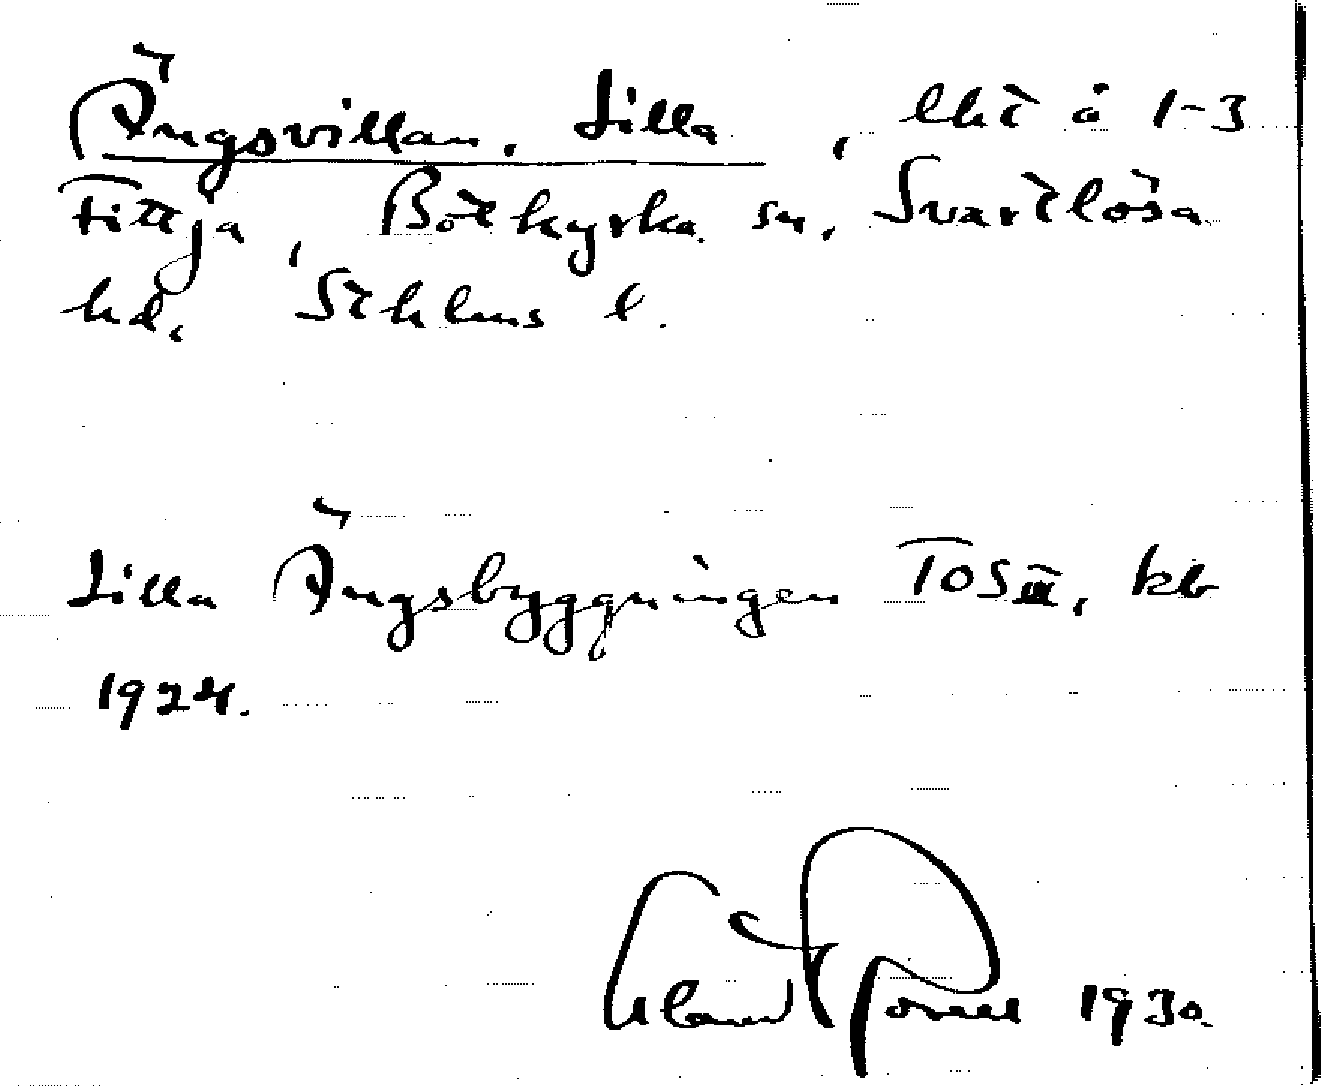 Ängsvillan, Lilla, lht å 1-3
Fittja, Botkyrka sn, Svartlösa
hd, Sthlms l.
Lilla Ängsbyggningen TOS III, kb
1924.
1930.